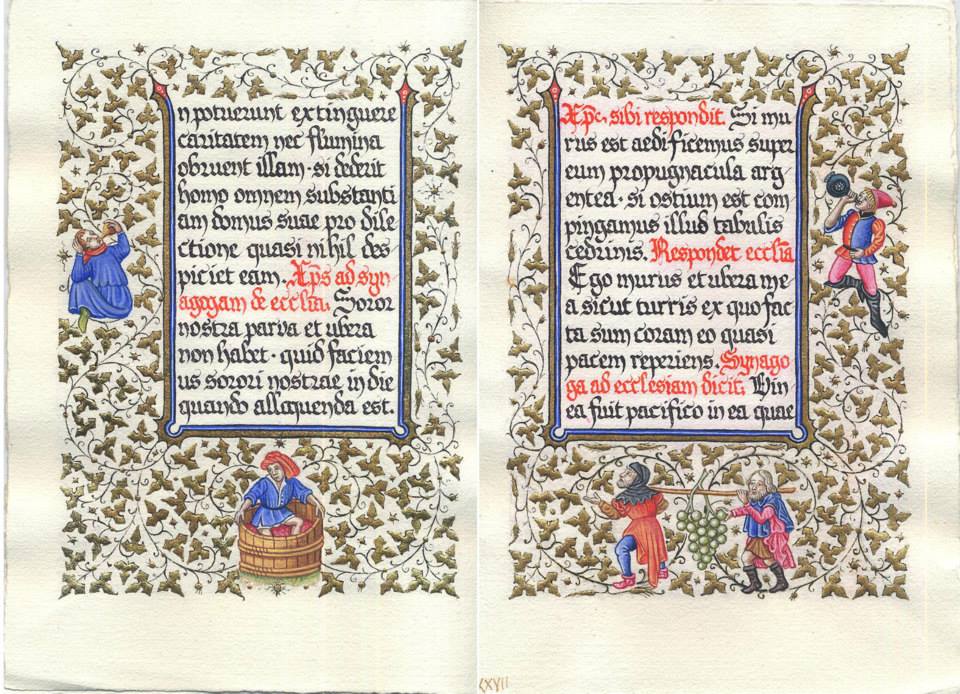 n potuerunt extinguere
caritatem nec flumina
obruent illam · si dederit
homo omnem substanti
am domus suae pro dile
ctione quasi nihil des
piciet eam. Xp̄s ad syn
agogam de ecclīa. Soror
nostra parva et ubera
non habet · quid faciem
us sorori nostrae in die
quando alloquenda est.
Xp̄c sibi respondit. Si mu
rus est aedificemus super
eum propugnacula arg
entea · si ostium est com
pingamus illud tabulis
cedrinis. Respondet ecclīa
Ego murus et ubera me
a sicut turris ex quo fac
ta sum coram eo quasi
pacem reperiens. Synago
ga ad ecclesiam dicit. Vin
ea fuit pacifico in ea quae